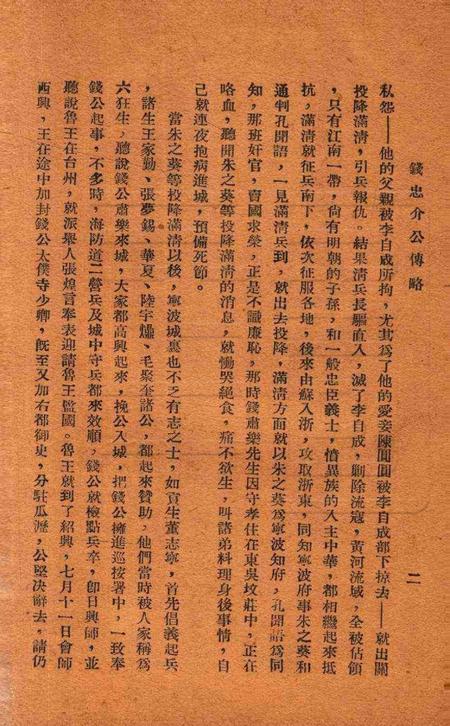 錢忠介公傳略
二
私怨——他的父親被李自成所拘，尤其爲了他的愛妾陳圓圓被李自成部下掠去——就出關
投降滿清，引兵報仇。結果清兵長驅直入，滅了李自成，剿除流寇，黃河流域，全被佔領
，只有江南一帶，尙有明朝的子孫，和一般忠臣義士，憤異族的入主中華，都相繼起來抵
抗，滿清就征兵南下，依次征服各地，後來由蘇入浙，攻取浙東，同知寧波府事朱之葵和
通判孔聞語，一見滿清兵到，就出去投降，滿清方面就以朱之葵爲寧波知府，孔聞語爲同
知，那班奸官，賣國求榮，正是不識廉恥，那時錢肅樂先生因守孝住在東吳坟莊中，正在
咯血，聽聞朱之葵等投降滿清的消息，就慟哭絕食，痛不欲生，叫諸弟料理身後事情，自
己就連夜抱病進城，預備死節。
當朱之葵等投降滿清以後，寧波城裏也不乏有志之士，如貢生董志寧，首先倡義起兵
，諸生王家勤、張夢錫、華夏、陸宇𤐣、毛聚奎諸公，都起來贊助，他們當時被人家稱爲
六狂生，聽說錢公肅樂來城，大家都高興起來，挽公入城，把錢公擁進巡按署中，一致奉
錢公起事，不多時，海防道二營兵及城中守兵都來效順，錢公就檢點兵卒，卽日興師，並
聽說魯王在台州，就派舉人張煌言奉表迎請魯王監國。魯王就到了紹興，七月十一日會師
西興，王在途中加封錢公太僕寺少卿，旣至又加右都御史，分駐瓜瀝，公堅決辭去，請仍